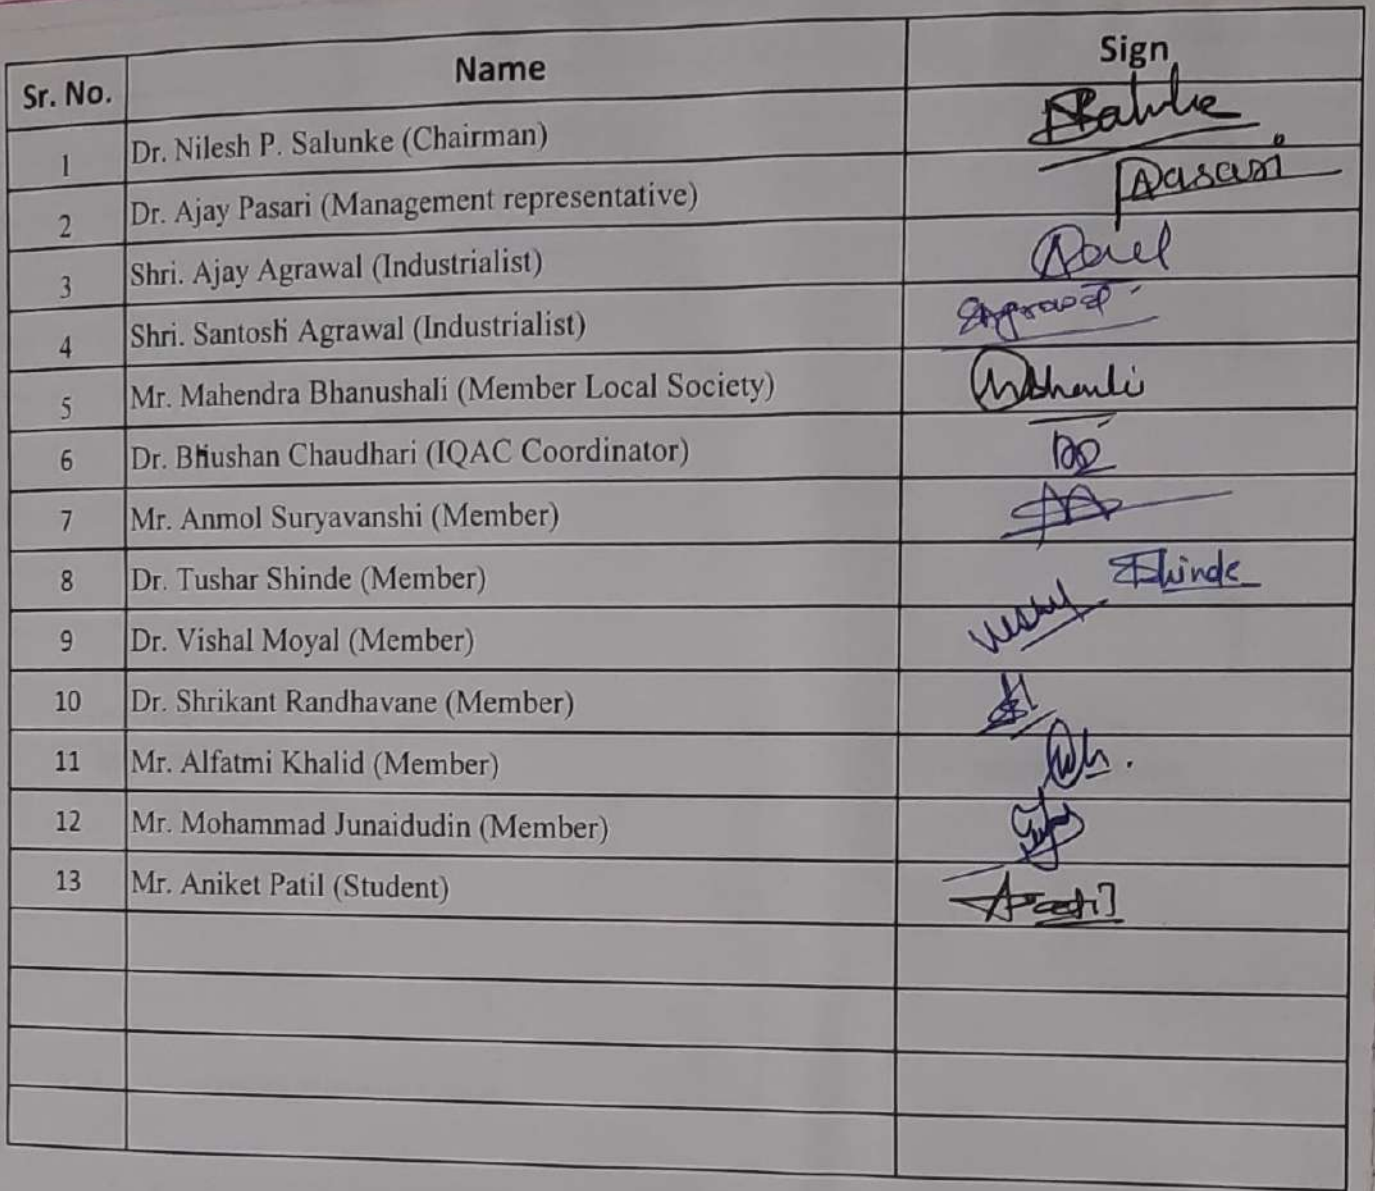 Sr. No. Name Sign
1 Dr. Nilesh P. Salunke (Chairman)
2 Dr. Ajay Pasari (Management representative) Pasari
3 Shri. Ajay Agrawal (Industrialist)
4 Shri. Santosh Agrawal (Industrialist) Agrawal
5 Mr. Mahendra Bhanushali (Member Local Society)
6 Dr. Bhushan Chaudhari (IQAC Coordinator)
7 Mr. Anmol Suryavanshi (Member)
8 Dr. Tushar Shinde (Member) Shinde
9 Dr. Vishal Moyal (Member)
10 Dr. Shrikant Randhavane (Member)
11 Mr. Alfatmi Khalid (Member)
12 Mr. Mohammad Junaidudin (Member)
13 Mr. Aniket Patil (Student)